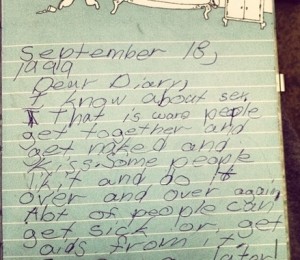 September 18,
1999
Dear Diary,
I know about sex.
That is ware people
get together and
get naked and
kiss. Some people
lik it and do it
over and over again
Alot of people can
get sick or get
aids from it.
later!